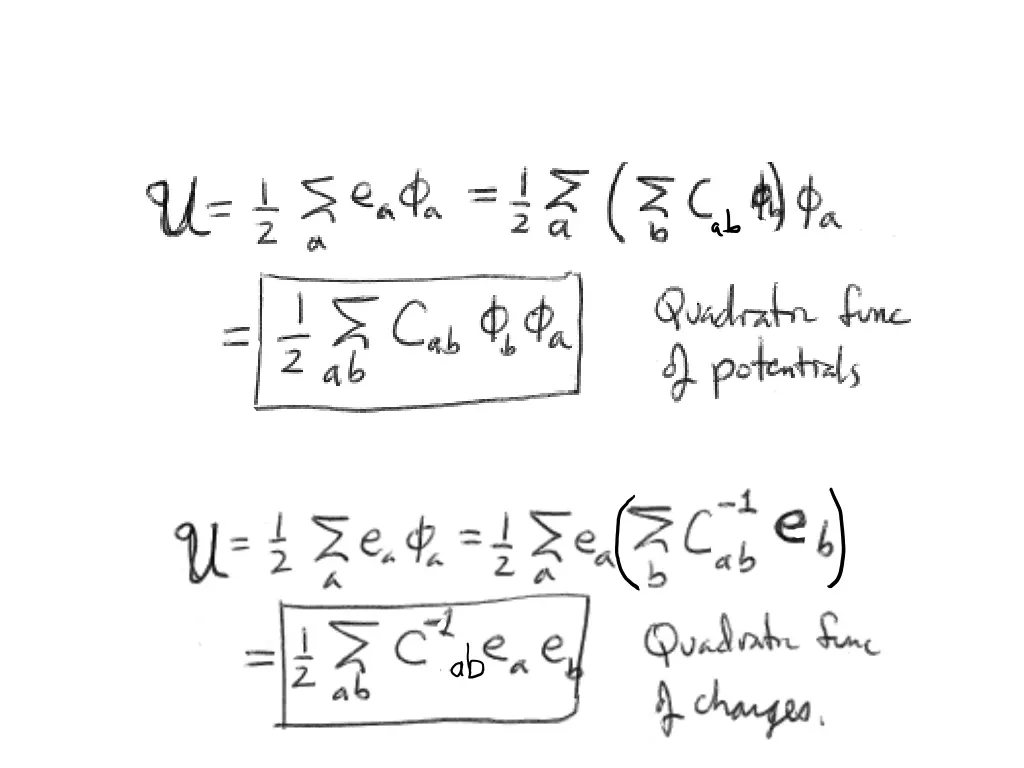 U = 1/2 Σ_a e_a ϕ_a = 1/2 Σ_a ( Σ_b C_ab ϕ_b ) ϕ_a
= 1/2 Σ_ab C_ab ϕ_b ϕ_a
Quadratic func
of potentials
U = 1/2 Σ_a e_a ϕ_a = 1/2 Σ_a e_a ( Σ_b C_ab^-1 e_b )
= 1/2 Σ_ab C^-1_ab e_a e_b
Quadratic func
of charges.